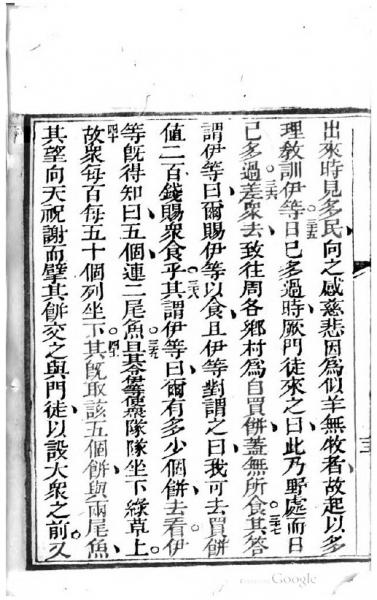 出來時見多民向之感慈悲因爲似羊無牧者故起以多
理教訓伊等三五日已多過時厥門徒來之曰此乃野處而日
已多過三六差衆去致往周各鄉村爲自買餅蓋無所食三七其答
謂伊等曰爾賜伊等以食且伊等對謂之曰我可去買餅
値二百錢賜衆食乎三八其謂伊等曰爾有多少個餅去看伊
等旣得知曰五個連二尾魚三九且其令等隊隊坐下綠草上
四十故衆每百每五十個列坐下四一其旣取該五個餅與兩尾魚
其望向天祝謝而擘其餅交之與門徒以設大衆之前又
三
Google